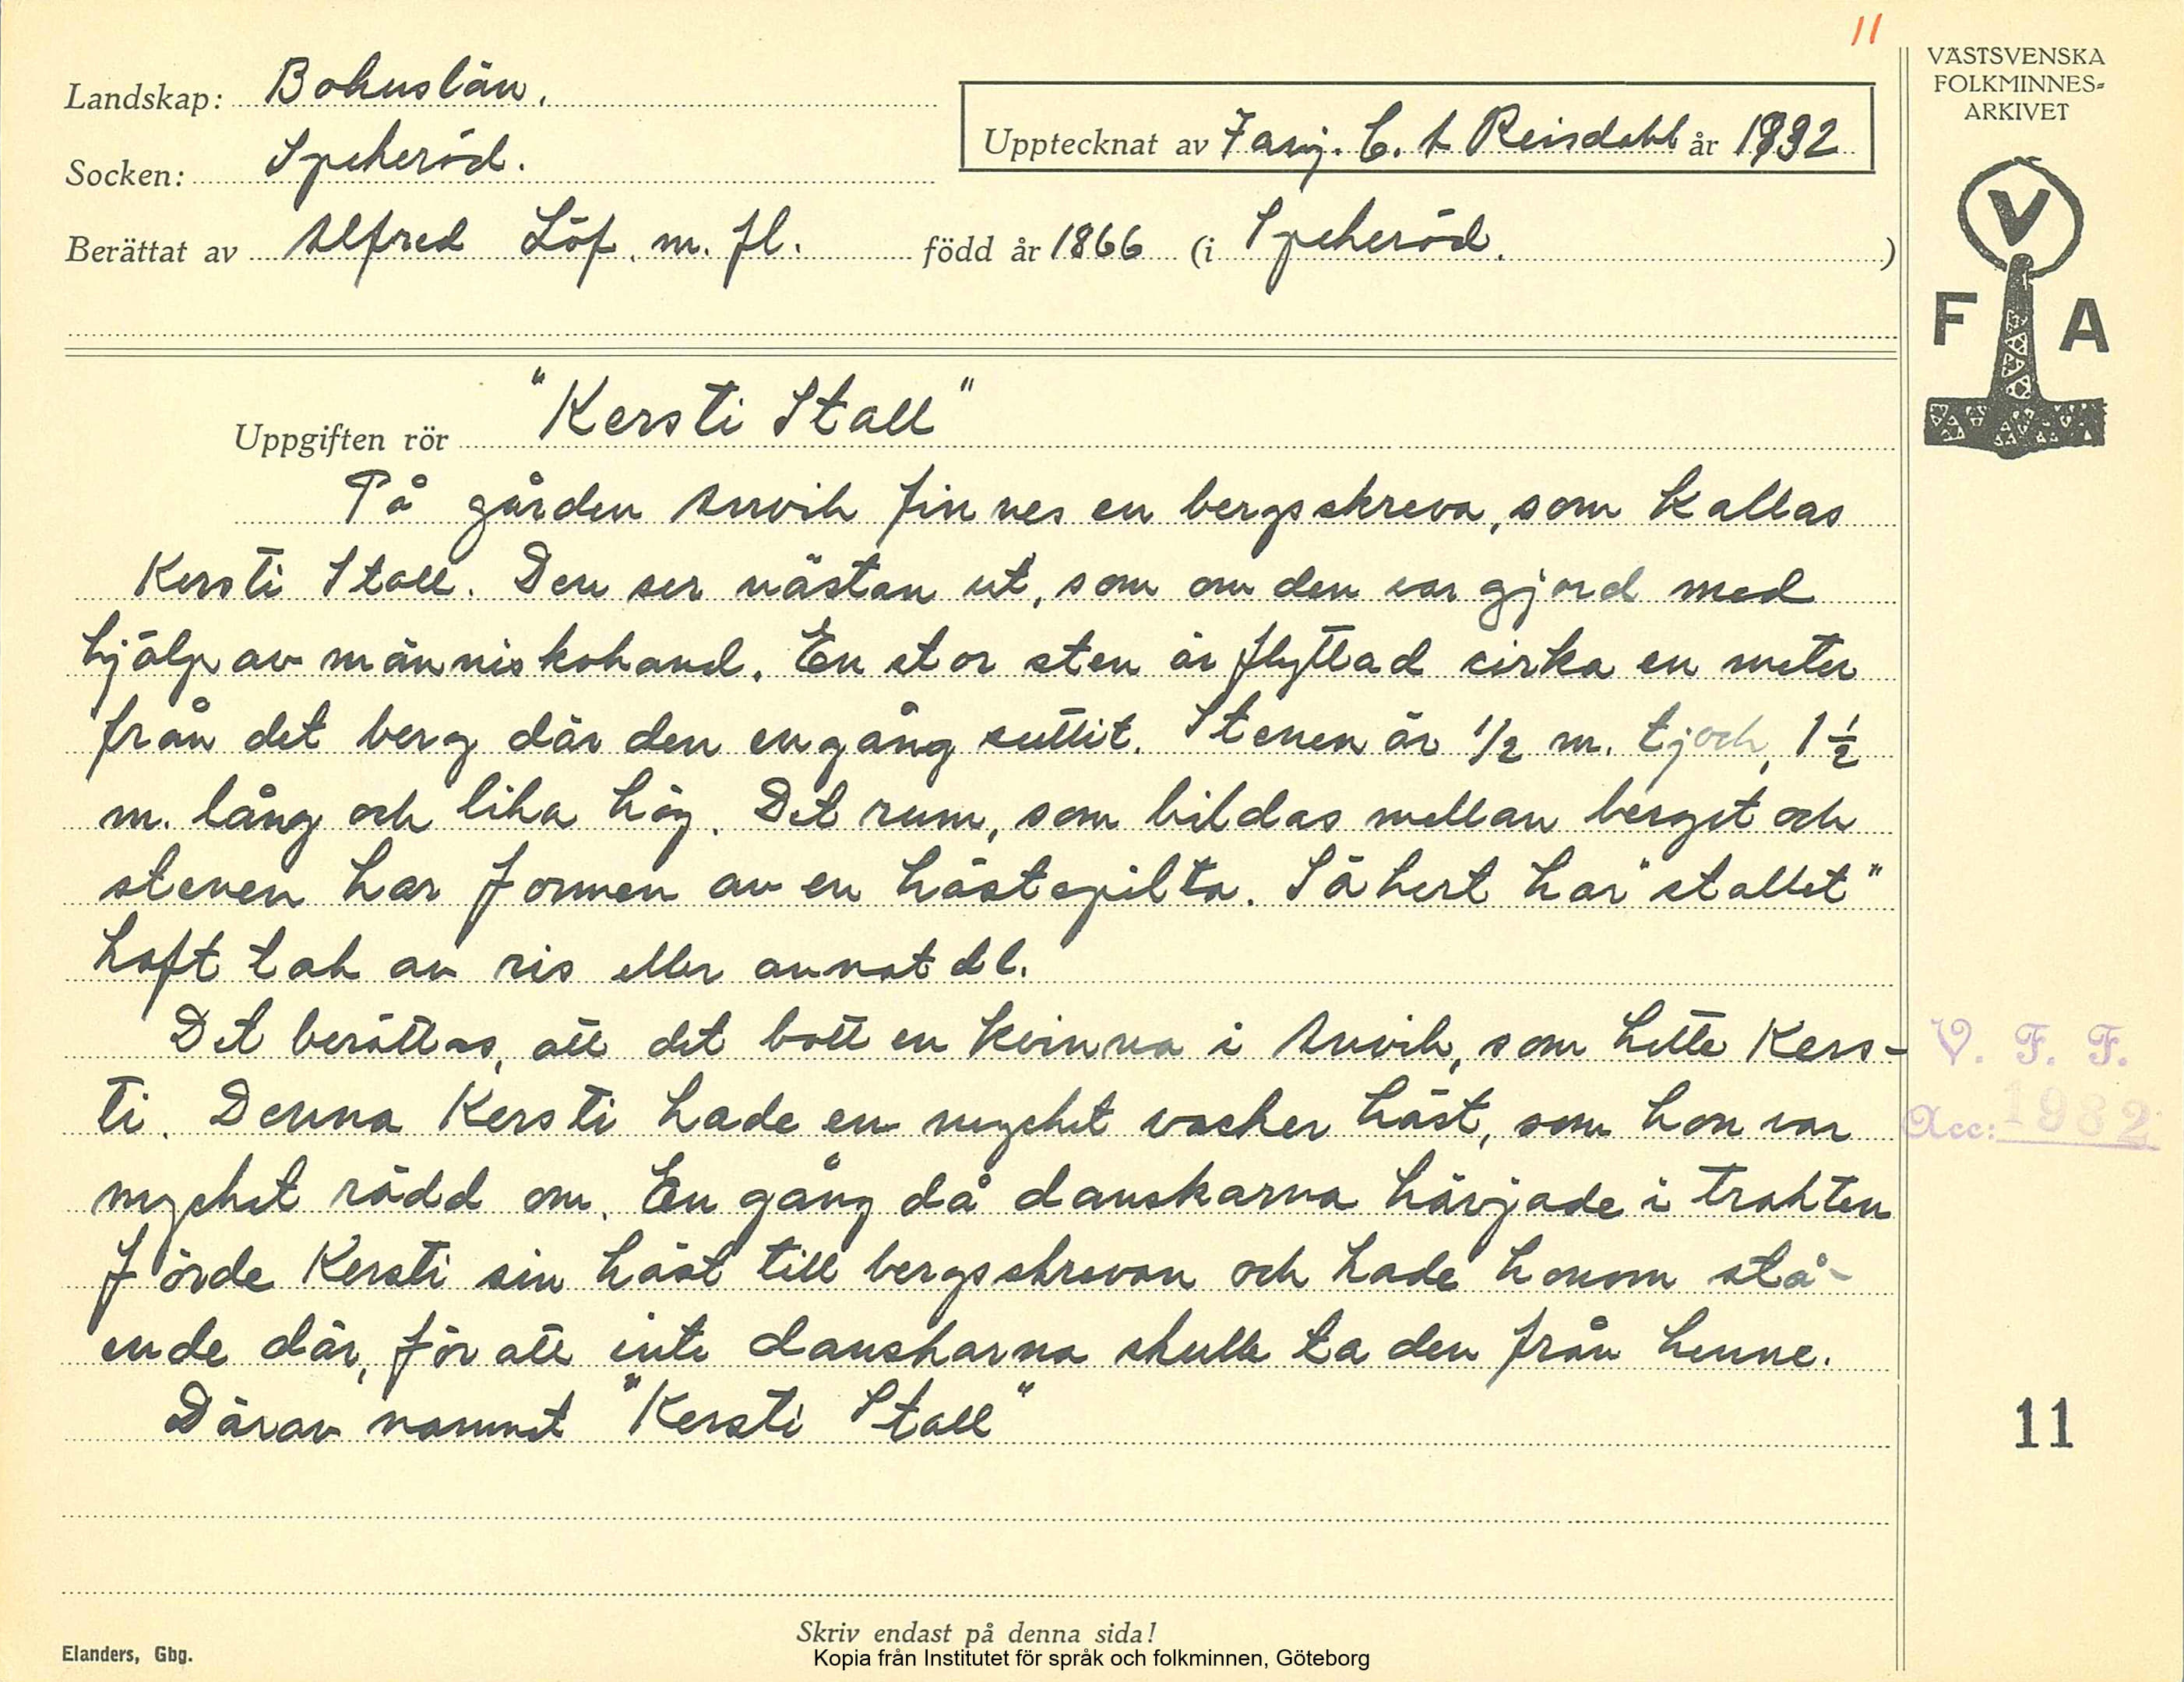 11
VÄSTSVENSKA
FOLKMINNES=
ARKIVET
Landskap: Bohuslän.
Upptecknat av Fanj. C. A Reisdahl år 1932
Socken: Spekeröd.
Berättat av Alfred Löf. m. fl. född år 1866 (i Spekeröd.)
V
F A
Uppgiften rör "Kersti Stall"
På gården Anvik finnes en bergsskreva, som kallas
Kersti Stall. Den ser nästan ut, som om den var gjord med
hjälp av människohand. En stor sten är flyttad cirka en meter
från det berg där den engång suttit. Stenen är 1/2 m. tjock, 1 1/2
m. lång och lika hög. Det rum, som bildas mellan berget och
stenen har formen av en hästspilta. Säkert har "stallet"
haft tak av ris eller annat dl.
Det berättas, att det bott en kvinna i Anvik, som hette Kers-
ti. Denna Kersti hade en mycket vacker häst, som hon var
mycket rädd om. En gång då danskarna härjade i trakten
förde Kersti sin häst till bergsskrevan och hade honom stå-
ende där, för att inte danskarna skulle ta den från henne.
Därav namnet "Kersti Stall"
V. F. F.
Acc: 1982
11
Skriv endast på denna sida!
Elanders, Gbg.
Kopia från Institutet för språk och folkminnen, Göteborg